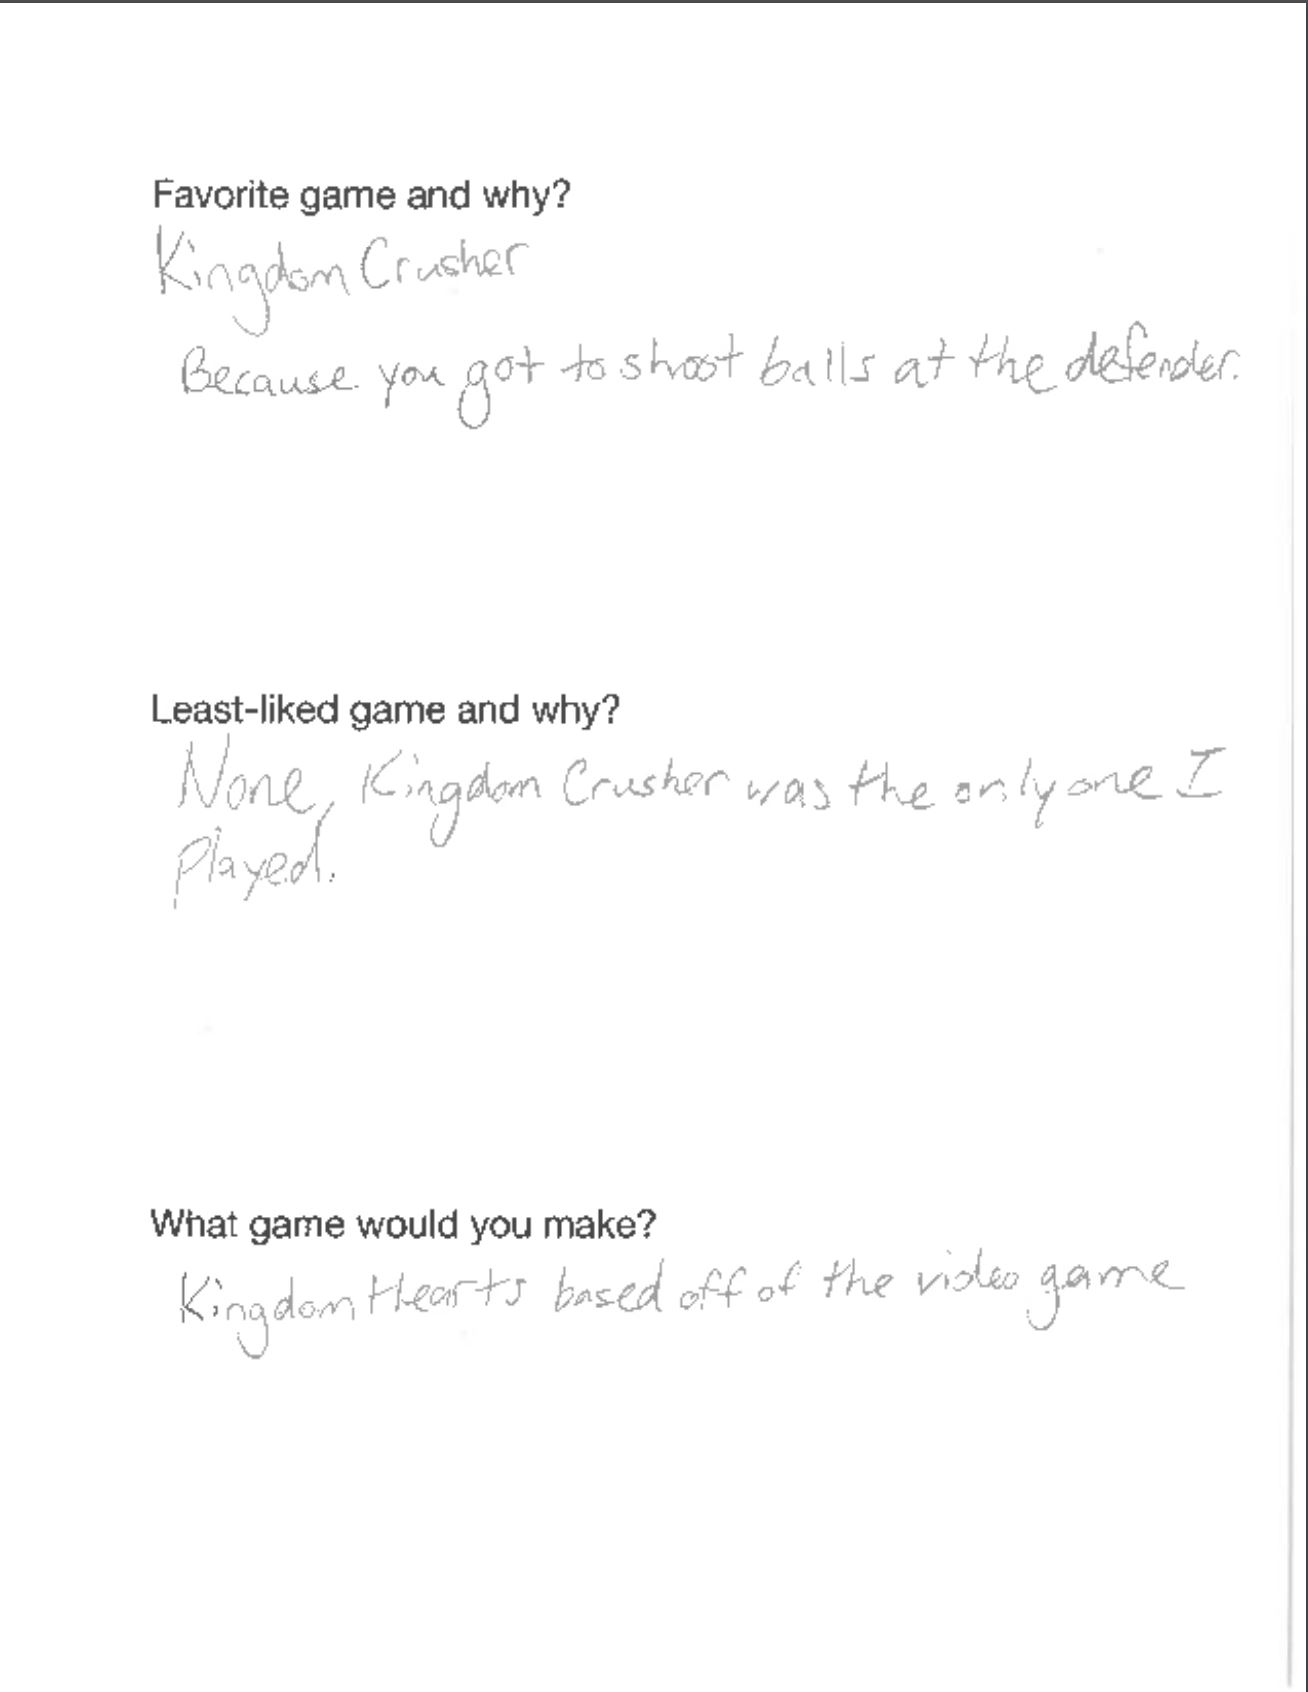 Favorite game and why?
Kingdom Crusher
Because you got to shoot balls at the defender.
Least-liked game and why?
None, Kingdom Crusher was the only one I
Played.
What game would you make?
Kingdom Hearts based off of the video game